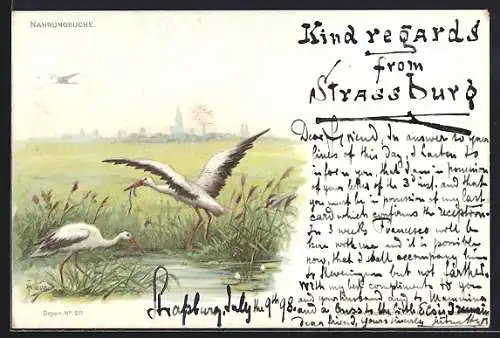 NAHRUNGSUCHE.
Kind regards
from
Strassburg
Dear Friend, In answer to your
lines of this day, I hasten to
inform you, that I am in possession
of your letter of the 3 inst, and that
you must be in possession of my last
card which confirms the reception.
In 3 weeks Francesco will be
here with me and it is possible
now, that I shall accompany him
to but not farther.
With my best compliments to you
and your husband and to
and a kiss to the little Elsie I remain
dear friend, yours sincerely
Strassburg, July the 9th 98.
Depon. Nº 211